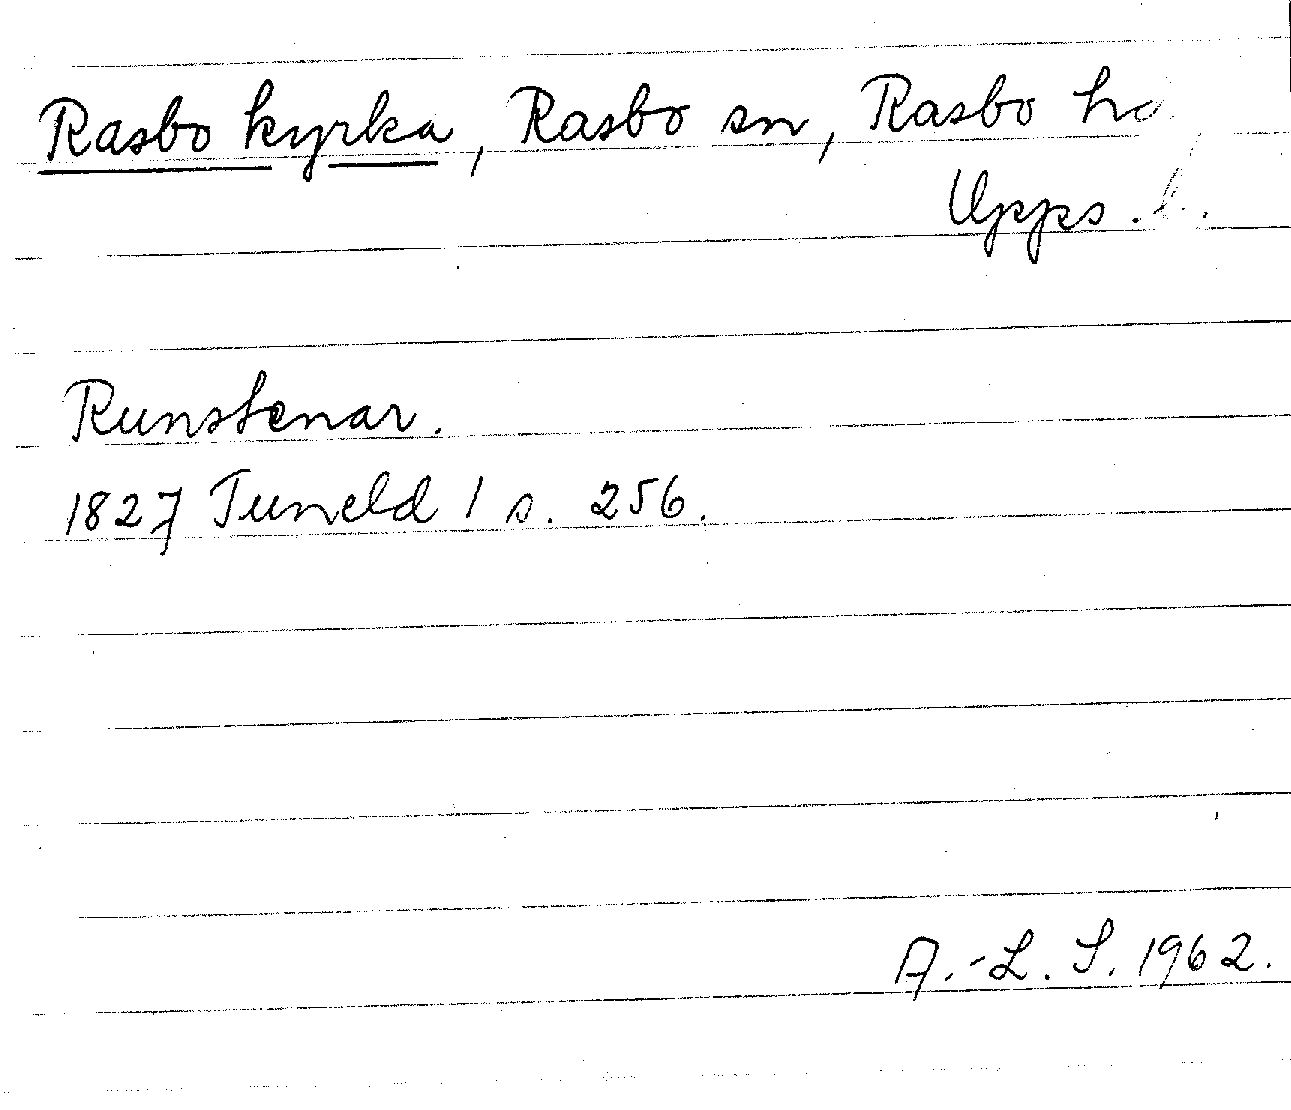 Rasbo kyrka, Rasbo sn, Rasbo hd
Upps. l.
Runstenar.
1827 Tuneld 1 s. 256.
A.-L. S. 1962.